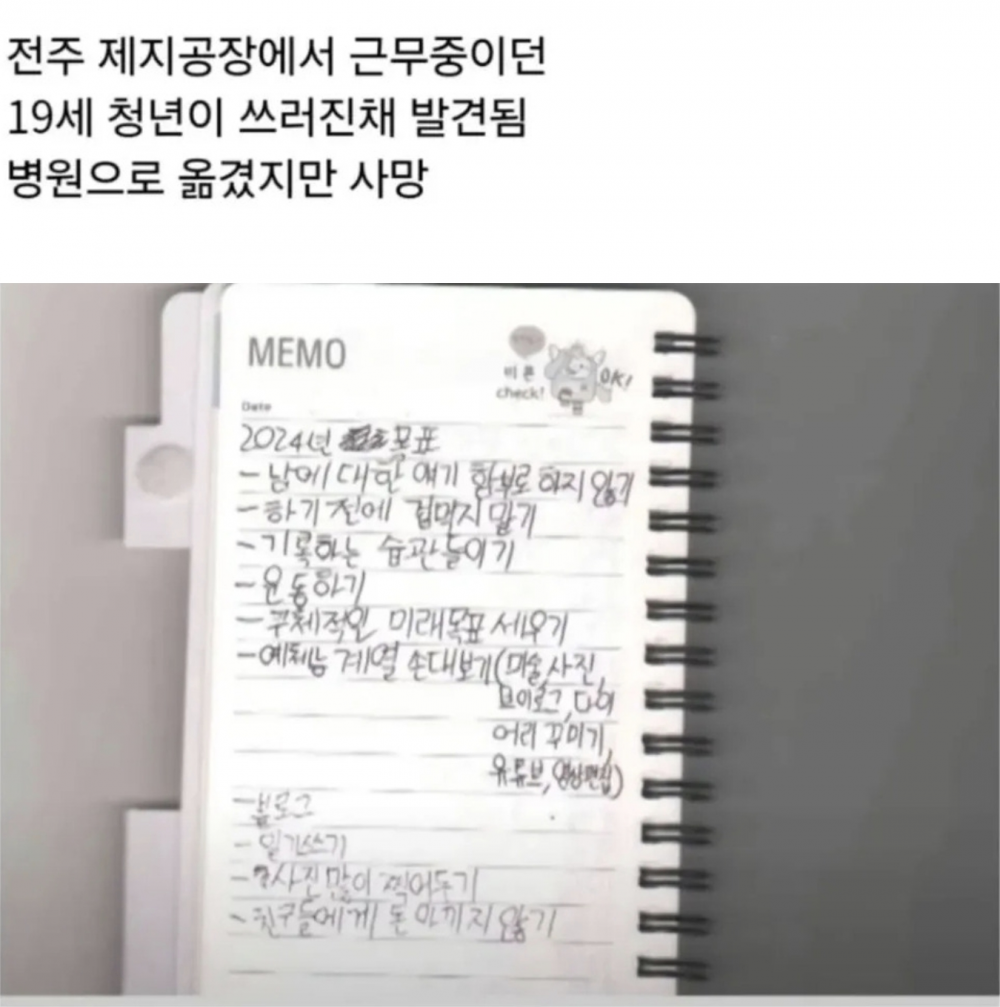 전주 제지공장에서 근무중이던
19세 청년이 쓰러진채 발견됨
병원으로 옮겼지만 사망
MEMO
check!
OK!
Date
2024년 목표
- 남에 대한 얘기 함부로 하지 않기
- 하기 전에 겁먹지 말기
- 기록하는 습관들이기
- 운동하기
- 구체적인 미래목표 세우기
- 예체능 계열 손대보기(미술,사진,
브이로그,다이
어리 꾸미기,
유튜브,영상편집)
- 블로그
- 일기쓰기
- 사진 많이 찍어두기
- 친구들에게 돈 아끼지 않기